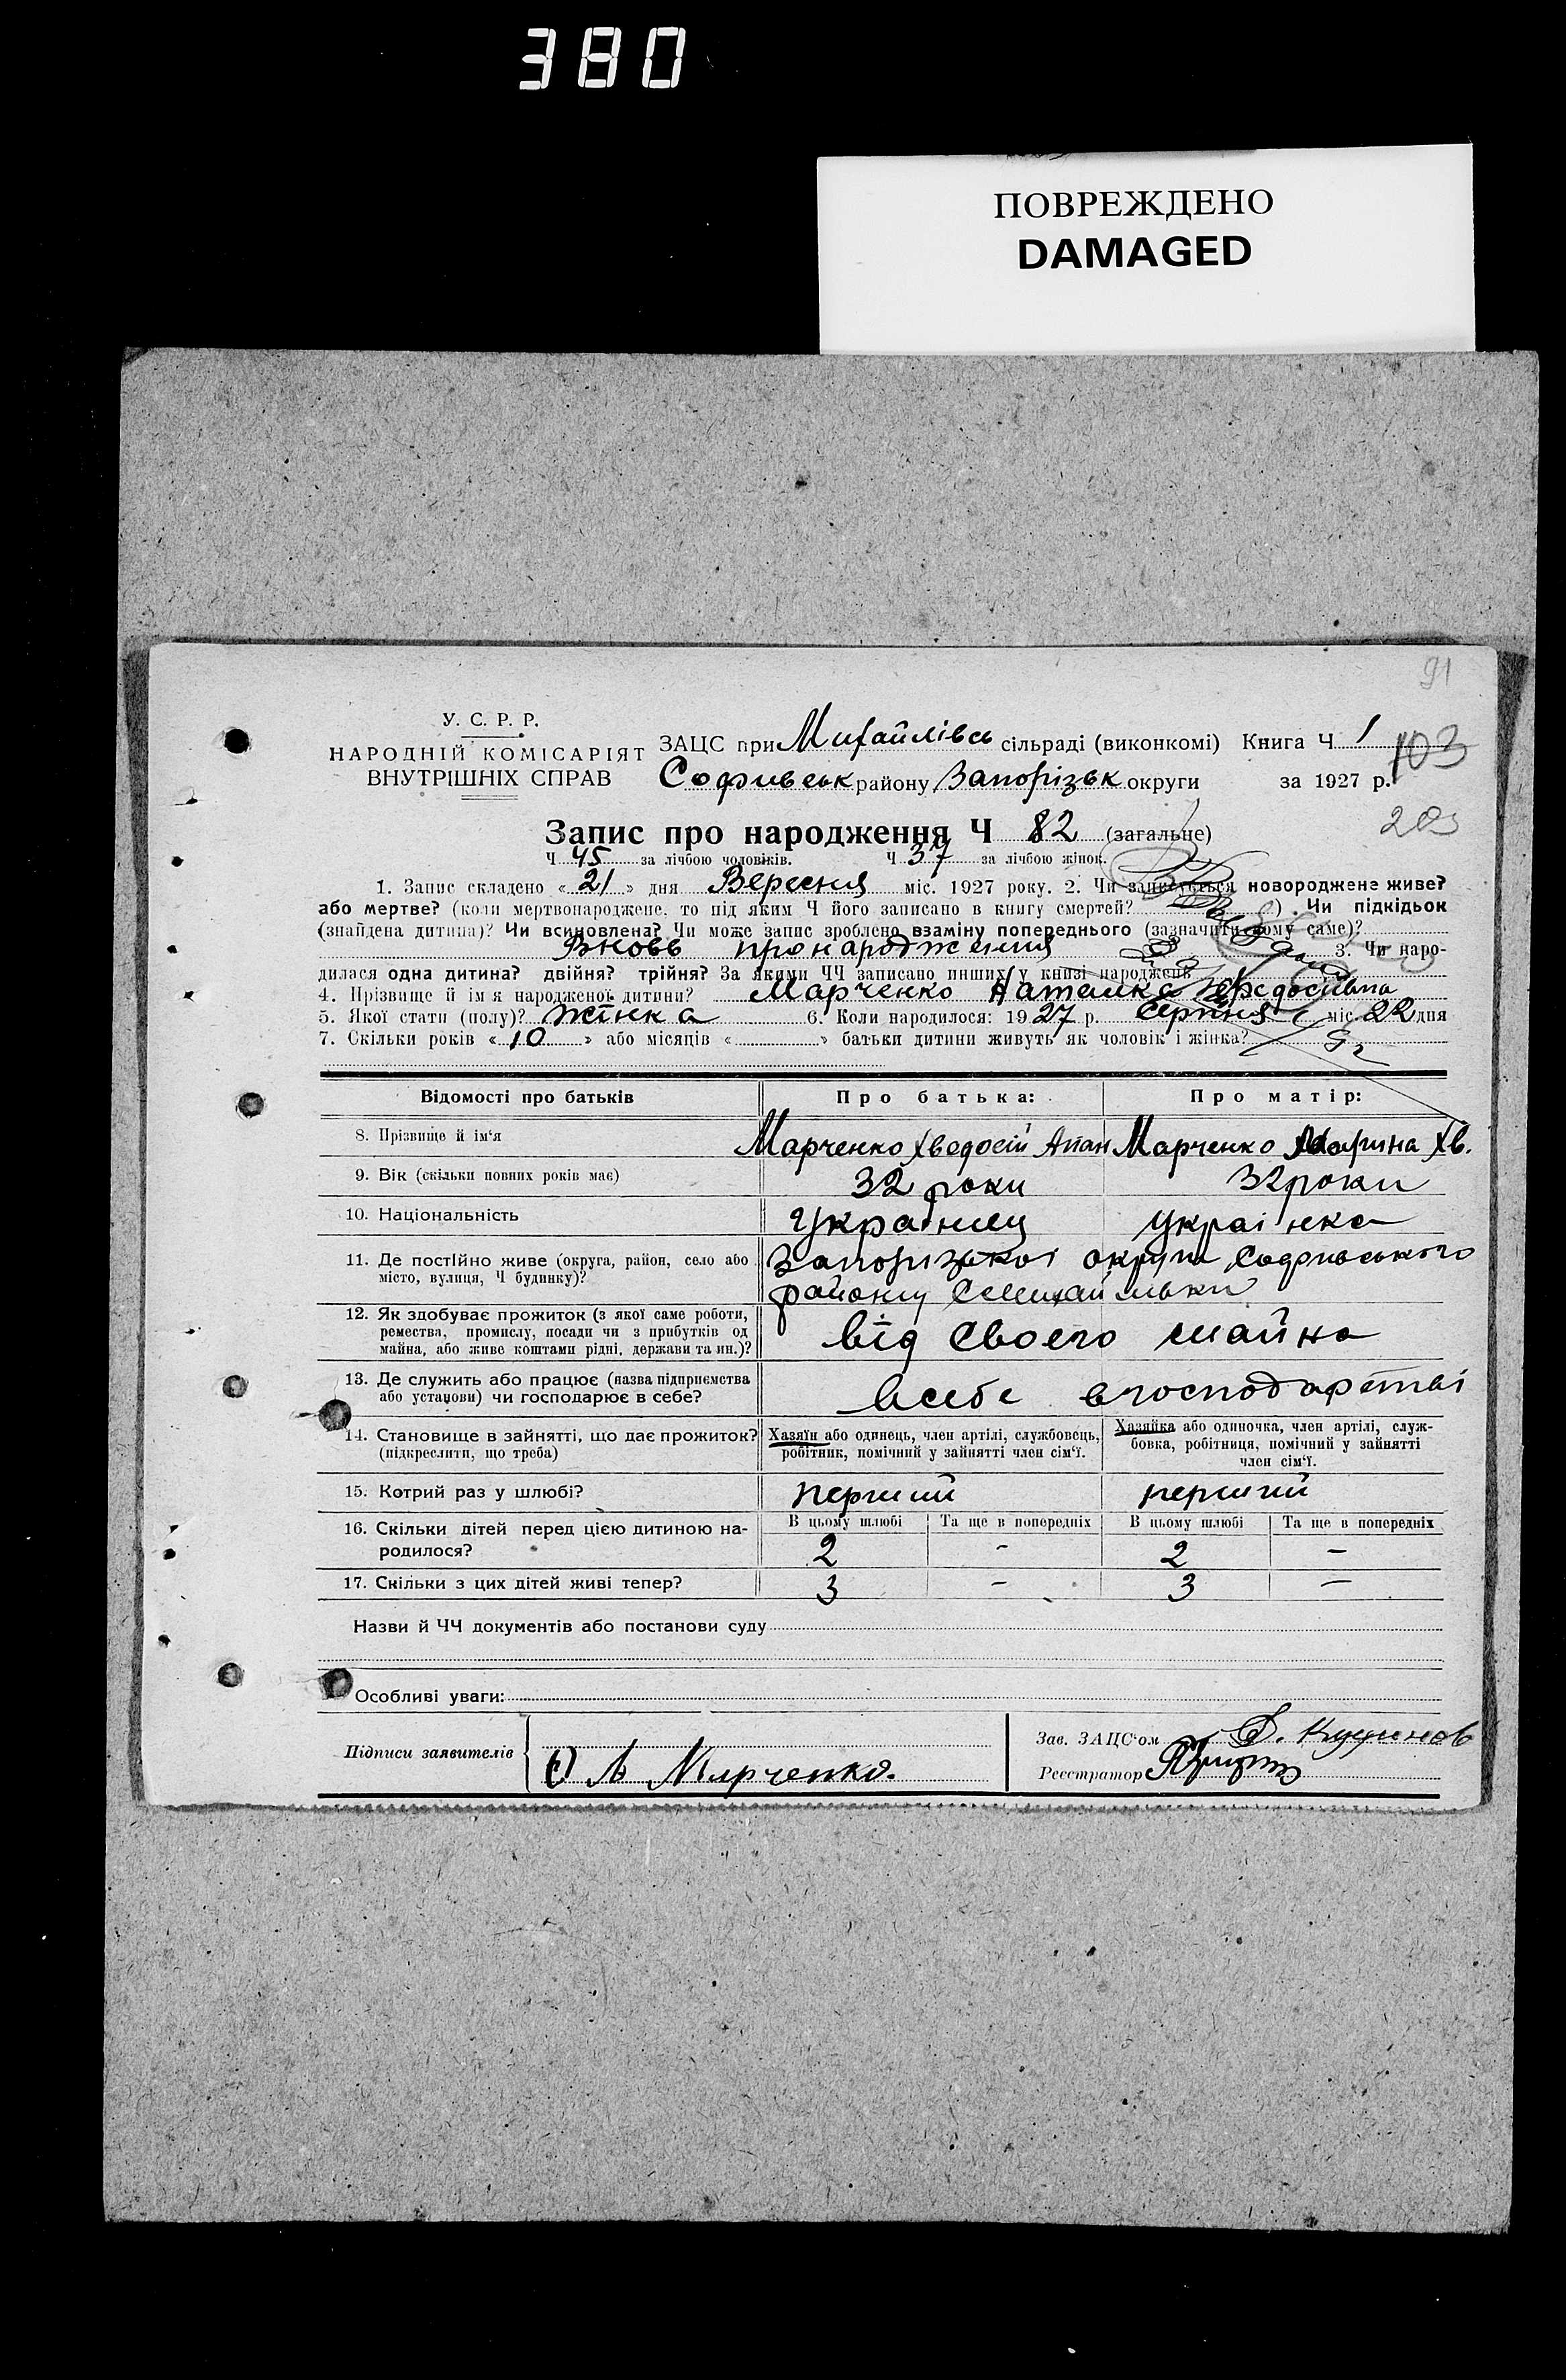 380
ПОВРЕЖДЕНО
DAMAGED
91
У. С. Р. Р.
НАРОДНІЙ КОМІСАРІЯТ
ВНУТРІШНІХ СПРАВ
ЗАЦС при Михайлівсь сільраді (виконкомі) Книга Ч 1
103
Софивськ району Запорізьк округи за 1927 р.
Запис про народження Ч 82 (загальне)
203
Ч 45 за лічбою чоловіків. Ч 37 за лічбою жінок.
1. Запис складено « 21 » дня Вересня міс. 1927 року. 2. Чи записується новороджене живе?
або мертве? (коли мертвонароджене, то під яким Ч його записано в книгу смертей? ) Чи підкідьок
(знайдена дитина)? Чи всиновлена? Чи може запис зроблено взаміну попереднього (зазначити кому саме)?
Вновь про народження 3. Чи наро-
дилася одна дитина? двійня? трійня? За якими ЧЧ записано инших у книзі народжень
4. Прізвище й ім'я народженої дитини? Марченко Наталка Хведосіївна
5. Якої стати (полу)? жінка 6. Коли народилося: 1927 р. Серпня міс. 22 дня
7. Скільки років « 10 » або місяців « » батьки дитини живуть як чоловік і жінка?
Відомості про батьків Про батька: Про матір:
8. Прізвище й ім'я Марченко Хведосій Апан Марченко Марина Хв.
9. Вік (скільки повних років має) 32 роки 32 роки
10. Національність Украинец украінка
11. Де постійно живе (округа, район, село або Запорізькоі округи Софивського
місто, вулиця, Ч будинку)? району С Михайлівки
12. Як здобуває прожиток (з якої саме роботи,
ремества, промислу, посади чи з прибутків од
майна, або живе коштами рідні, держави та ин.)? від своего майна
13. Де служить або працює (назва підприємства
або установи) чи господарює в себе? всебе вгосподарстві
14. Становище в зайнятті, що дає прожиток? Хазяїн або одинець, член артілі, службовець, Хазяйка або одиночка, член артілі, служ-
(підкреслити, що треба) робітник, помічний у зайнятті член сім'ї. бовка, робітниця, помічний у зайнятті
член сім'ї.
15. Котрий раз у шлюбі? перший перший
16. Скільки дітей перед цією дитиною на- В цьому шлюбі Та ще в попередніх В цьому шлюбі Та ще в попередніх
родилося? 2 - 2 -
17. Скільки з цих дітей живі тепер? 3 - 3 -
Назви й ЧЧ документів або постанови суду
Особливі уваги:
Підписи заявителів Марченко.
Зав. ЗАЦС'ом
Реєстратор